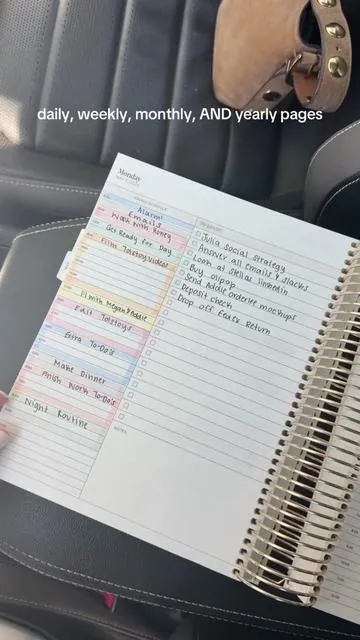 daily, weekly, monthly, AND yearly pages
Monday
Alarm!
Emails
Walk with Honey
Get Ready for Day
Film Tolstoy Videos
FI with Megan & Addie
Edit Tolstoys
Extra To-Do's
Make Dinner
Finish Work To-Do's
Night Routine
Julia social strategy
Answer all emails & slacks
Look at Stellar linkedin
Buy olipop
Send Addie orderlee mockups
Deposit check
Drop off FedEx Return
NOTES